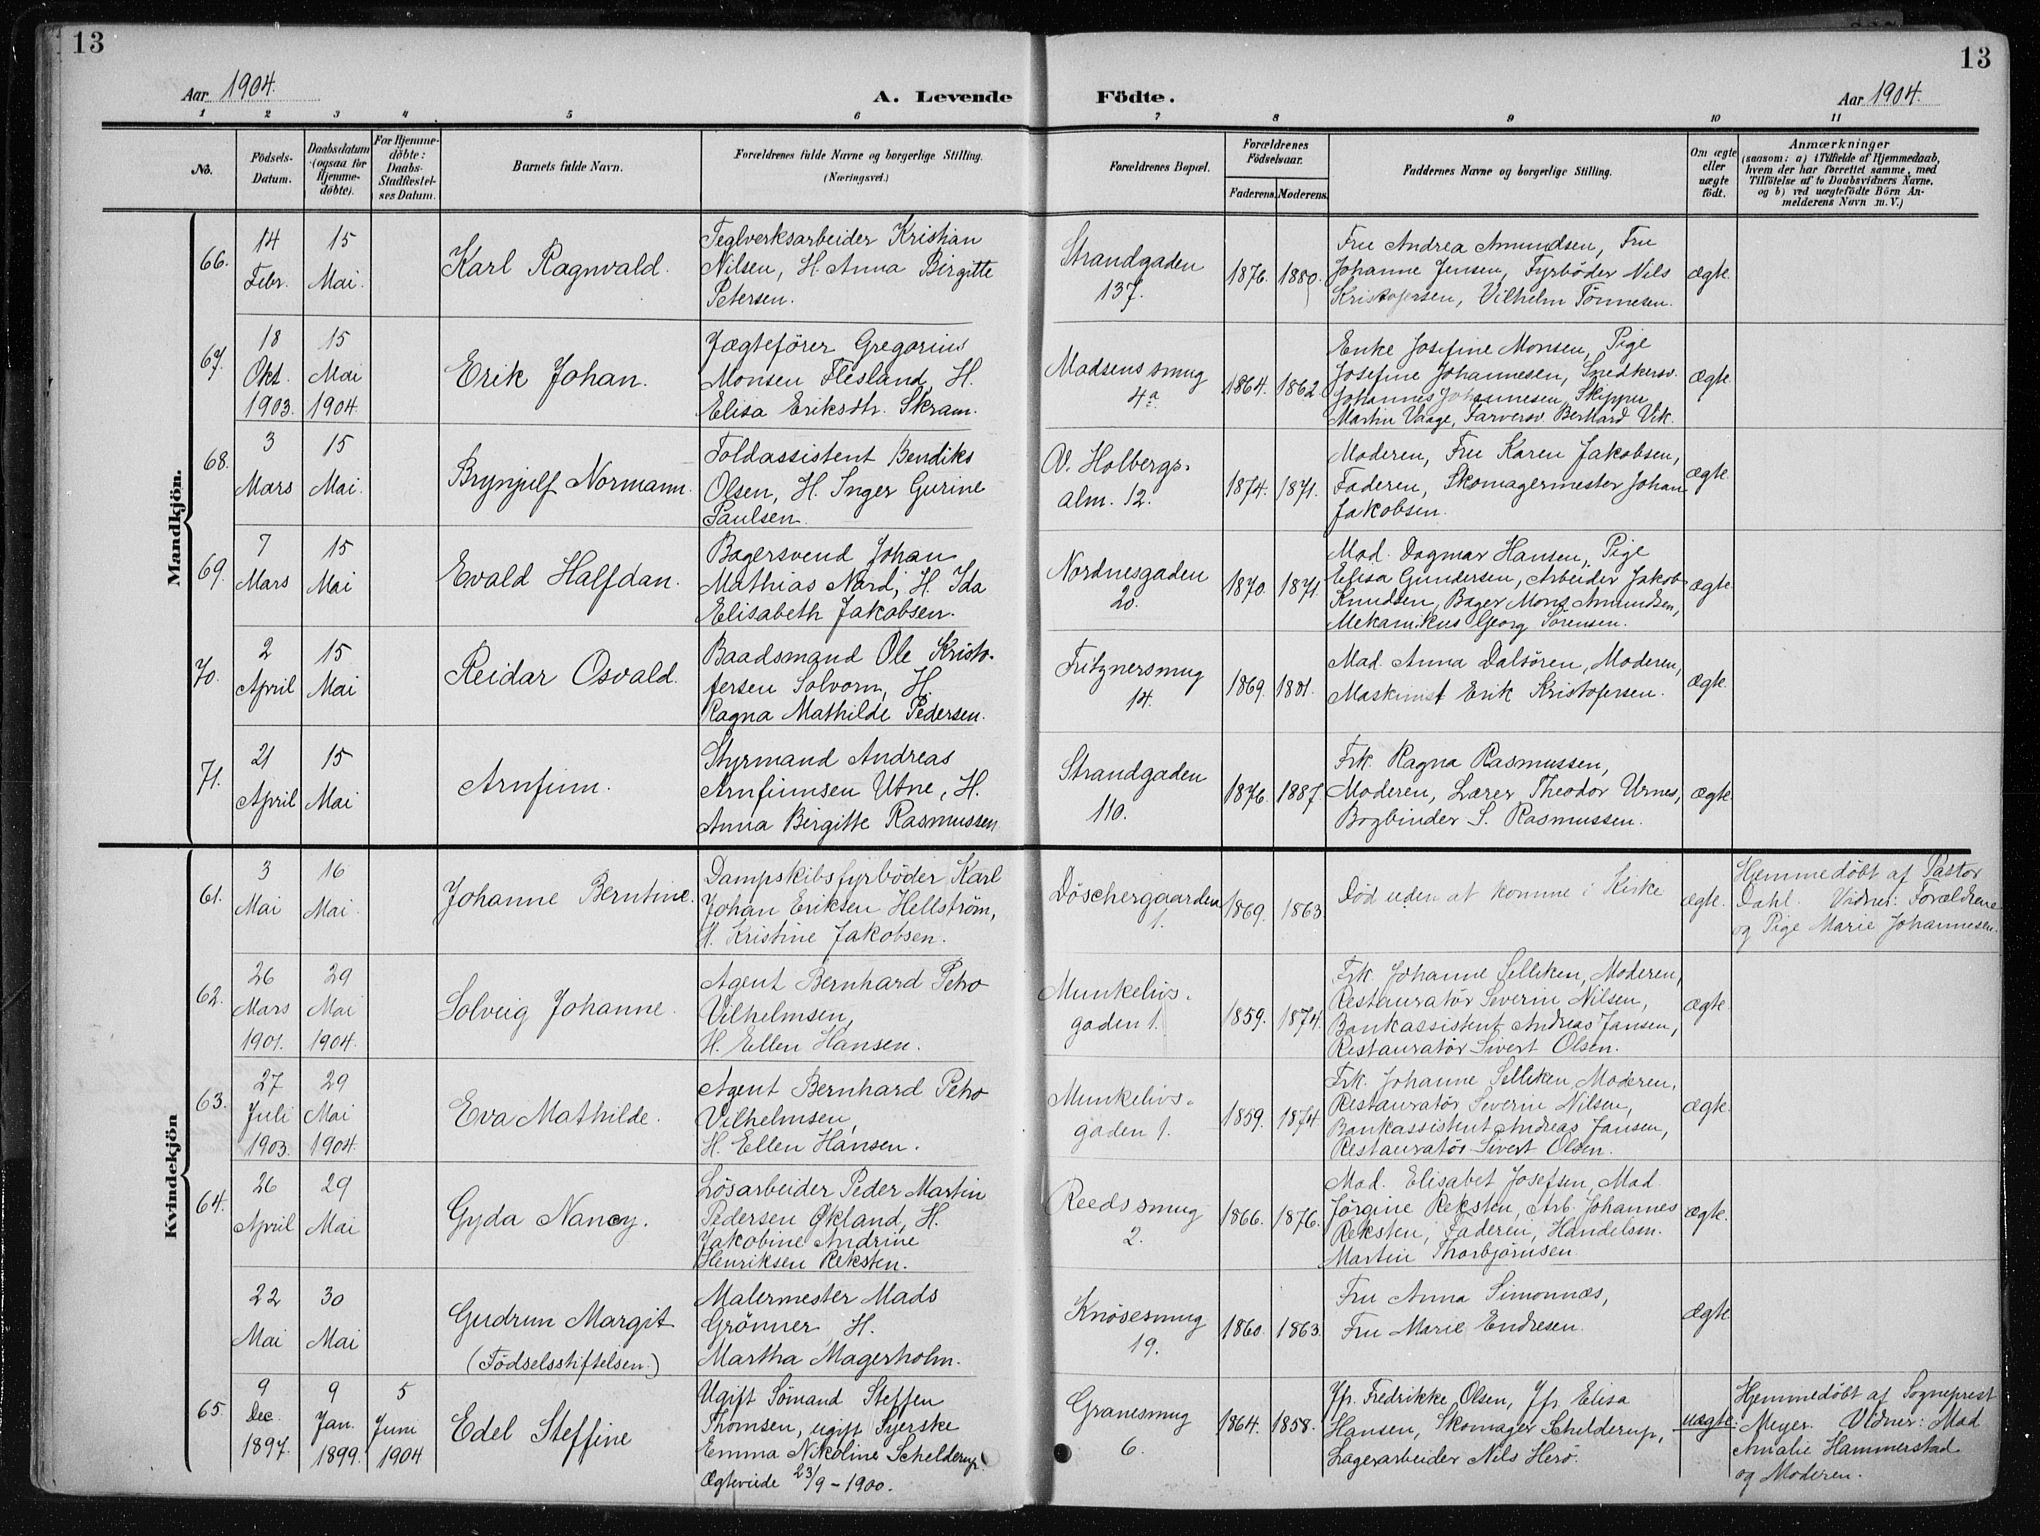 13
13
Aar 1904.
A. Levende Födte.
Aar 1904.
1 2 3 4 5 6 7 8 9 10 11
No.
Födsels-
Datum.
Daabsdatum
(ogsaa for
Hjemme-
döbte).
For Hjemme-
döbte:
Daabs-
Stadfæstel-
ses Datum.
Barnets fulde Navn.
Forældrenes fulde Navne og borgerlige Stilling.
(Næringsvei.)
Forældrenes Bopæl.
Forældrenes
Födselsaar.
Faderens. Moderens.
Faddernes Navne og borgerlige Stilling.
Om ægte
eller
uægte
födt.
Anmærkninger
(saasom: a) i Tilfælde af Hjemmedaab,
hvem der har forrettet samme, med
Tilföielse af to Daabsvidners Navne,
og b) ved uægtefödte Börn An-
melderens Navn m. V.)
Mandkjön.
66.
14
Febr.
15
Mai.
Karl Ragnvald.
Teglverksarbeider Kristian
Nilsen, H. Anna Birgitte
Petersen.
Strandgaden
137.
1876. 1880.
Fru Andrea Amundsen, Fru
Johanne Jensen, Fyrbøder Nils
Kristofersen, Vilhelm Tønnesen.
ægte.
67.
18
Okt.
1903.
15
Mai
1904.
Erik Johan.
Jægtefører Gregorius
Monsen Flesland, H.
Elisa Eriksdtr. Skram.
Madsens smug
4a.
1864. 1862.
Enke Josefine Monsen, Pige
Josefine Johannesen, Snedkersv.
Johannes Johannesen, Skipper
Martin Vaage, Farversv. Bernhard Vik.
ægte.
68.
3
Mars
15
Mai.
Brynjulf Normann.
Toldassistent Bendiks
Olsen, H. Inger Gurine
Paulsen.
V. Holbergs-
alm. 12.
1874. 1871.
Moderen, Fru Karen Jakobsen,
Faderen, Skomagermester Johan
Jakobsen.
ægte.
69.
7
Mars
15
Mai
Evald Halfdan.
Bagersvend Johan
Mathias Nard, H. Ida
Elisabeth Jakobsen.
Nordnesgaden
20.
1870. 1871.
Mad. Dagmar Hansen, Pige
Elisa Gundersen, Arbeider Jakob
Knudsen, Bager Mons Amundsen,
Mekanikus Georg Sørensen.
ægte.
70.
2
April
15
Mai
Reidar Osvald.
Baadsmand Ole Kristo-
fersen Solvorn, H.
Ragna Mathilde Pedersen.
Fritznersmug
14.
1869. 1881.
Mad. Anna Dalsøren, Moderen,
Maskinist Erik Kristofersen.
ægte.
71.
21
April
15
Mai
Arnfinn.
Styrmand Andreas
Arnfinnsen Utne, H.
Anna Birgitte Rasmussen
Strandgaden
110.
1876. 1887.
Frk. Ragna Rasmussen,
Moderen, Lærer Theodor Urnes,
Bogbinder S. Rasmussen.
ægte.
Kvindekjön
61.
3
Mai
16
Mai.
Johanne Berntine.
Dampskibsfyrbøder Karl
Johan Eriksen Hellström,
H. Kristine Jakobsen.
Döschergaarden
1.
1869. 1863
Død uden at komme i Kirke
ægte.
Hjemmedøbt af Pastor
Dahl. Vidner: Forældrene
og Pige Marie Johannesen.
62.
26
Mars
1901.
29
Mai
1904.
Solveig Johanne.
Agent Bernhard Petro
Vilhelmsen,
H. Ellen Hansen.
Munkelivs-
gaden 1.
1859. 1874.
Frk. Johanne Selliken, Moderen,
Restauratør Severin Nilsen,
Bankassistent Andreas Jansen,
Restauratør Sivert Olsen.
ægte.
63.
27
Juli
1903.
29
Mai
1904.
Eva Mathilde.
Agent Bernhard Petro
Vilhelmsen,
H. Ellen Hansen.
Munkelivs-
gaden 1.
1859. 1874.
Frk. Johanne Selliken, Moderen,
Restauratør Severin Nilsen,
Bankassistent Andreas Jansen,
Restauratør Sivert Olsen.
ægte.
64.
26
April
29
Mai
Gyda Nancy.
Løsarbeider Peder Martin
Pedersen Økland, H.
Jakobine Andrine
Henriksen Reksten.
Reedssmug
2.
1866. 1876.
Mad. Elisabet Josefsen, Mad.
Jørgine Reksten, Arb. Johannes
Reksten, Faderen, Handelsm.
Martin Thorbjørnsen
ægte.
22
Mai
30
Mai
Gudrun Margit
(Fødselsstiftelsen.)
Malermester Mads
Grønner, H.
Martha Magerholm.
Knøsesmug
19.
1860. 1863.
Fru Anna Simonnæs,
Fru Marie Endresen.
Ægte
65.
9
Dec.
1897.
9
Jan.
1899.
5
Juni
1904
Edel Steffine
Ugift Sømand Steffen
Thomsen, ugift Syerske
Emma Nikoline Schelderup.
Ægteviede 23/9-1900.
Granesmug
6.
1864. 1858.
Jfr. Fredrikke Olsen, Jfr. Elisa
Hansen, Skomager Schelderup,
Lagerarbeider Nils Herø.
uægte.
Hjemmedøbt af Sogneprest
Meyer. Vidner: Mad.
Amalie Hammerstad
og Moderen.